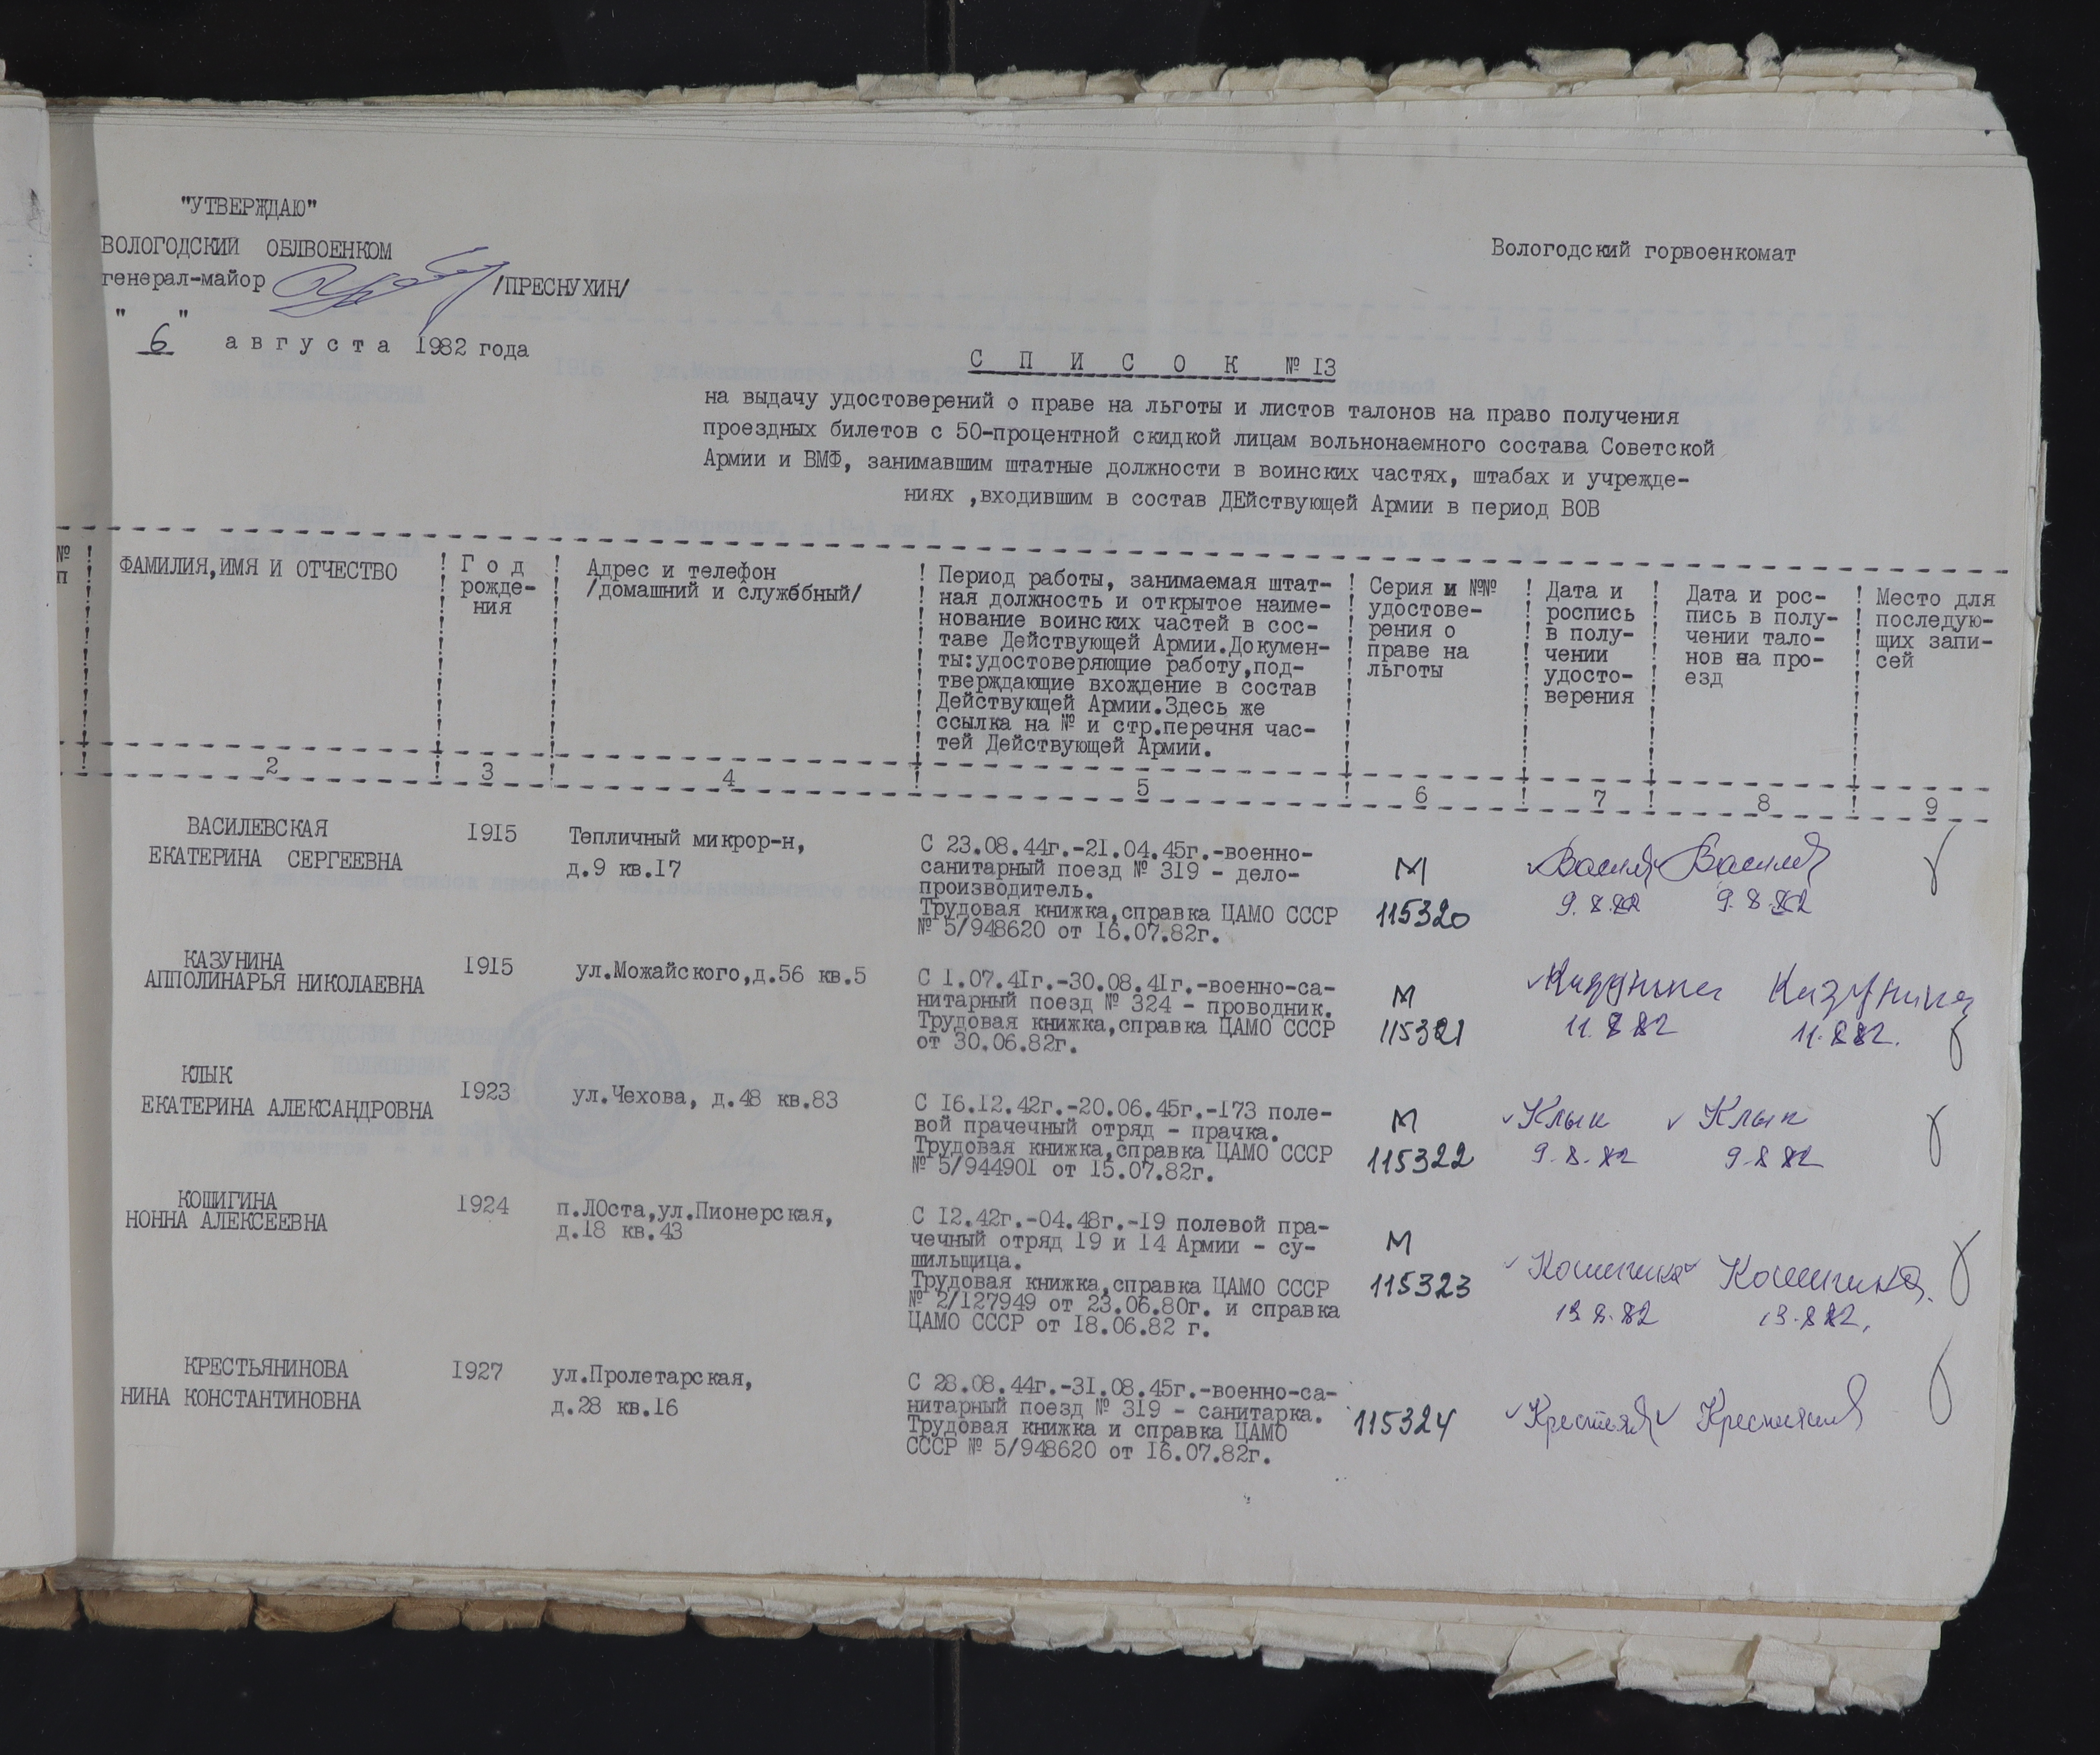 "УТВЕРЖДАЮ"
ВОЛОГОДСКИЙ ОБЛВОЕНКОМ
генерал-майор /ПРЕСНУХИН/
" 6 " августа 1982 года
Вологодский горвоенкомат
С П И С О К № 13
на выдачу удостоверений о праве на льготы и листов талонов на право получения
проездных билетов с 50-процентной скидкой лицам вольнонаемного состава Советской
Армии и ВМФ, занимавшим штатные должности в воинских частях, штабах и учрежде-
ниях ,входившим в состав ДЕйствующей Армии в период ВОВ
№
п
ФАМИЛИЯ,ИМЯ И ОТЧЕСТВО
Г о д
рожде-
ния
Адрес и телефон
/домашний и служебный/
Период работы, занимаемая штат-
ная должность и открытое наиме-
нование воинских частей в сос-
таве Действующей Армии.Докумен-
ты:удостоверяющие работу,под-
тверждающие вхождение в состав
Действующей Армии.Здесь же
ссылка на № и стр.перечня час-
тей Действующей Армии.
Серия и №№
удостове-
рения о
праве на
льготы
Дата и
роспись
в полу-
чении
удосто-
верения
Дата и рос-
пись в полу-
чении тало-
нов на про-
езд
Место для
последую-
щих запи-
сей
2 3 4 5 6 7 8 9
ВАСИЛЕВСКАЯ
ЕКАТЕРИНА СЕРГЕЕВНА
1915
Тепличный микрор-н,
д.9 кв.17
С 23.08.44г.-21.04.45г.-военно-
санитарный поезд № 319 - дело-
производитель.
Трудовая книжка,справка ЦАМО СССР
№ 5/948620 от 16.07.82г.
М
115320
9.8.82
9.8.82
КАЗУНИНА
АППОЛИНАРЬЯ НИКОЛАЕВНА
1915
ул.Можайского,д.56 кв.5
С 1.07.41г.-30.08.41г.-военно-са-
нитарный поезд № 324 - проводник.
Трудовая книжка,справка ЦАМО СССР
от 30.06.82г.
М
115321
Казунина
11.8.82
Казунина
11.8.82.
КЛЫК
ЕКАТЕРИНА АЛЕКСАНДРОВНА
1923
ул.Чехова, д.48 кв.83
С 16.12.42г.-20.06.45г.-173 поле-
вой прачечный отряд - прачка.
Трудовая книжка,справка ЦАМО СССР
№ 5/944901 от 15.07.82г.
М
115322
Клык
9.8.82
Клык
9.8.82
КОШИГИНА
НОННА АЛЕКСЕЕВНА
1924
п.ЛОста,ул.Пионерская,
д.18 кв.43
С 12.42г.-04.48г.-19 полевой пра-
чечный отряд 19 и 14 Армии - су-
шильщица.
Трудовая книжка,справка ЦАМО СССР
№ 2/127949 от 23.06.80г. и справка
ЦАМО СССР от 18.06.82 г.
М
115323
Кошигина
13.8.82
Кошигина.
13.8.82.
КРЕСТЬЯНИНОВА
НИНА КОНСТАНТИНОВНА
1927
ул.Пролетарская,
д.28 кв.16
С 28.08.44г.-31.08.45г.-военно-са-
нитарный поезд № 319 - санитарка.
Трудовая книжка и справка ЦАМО
СССР № 5/948620 от 16.07.82г.
115324